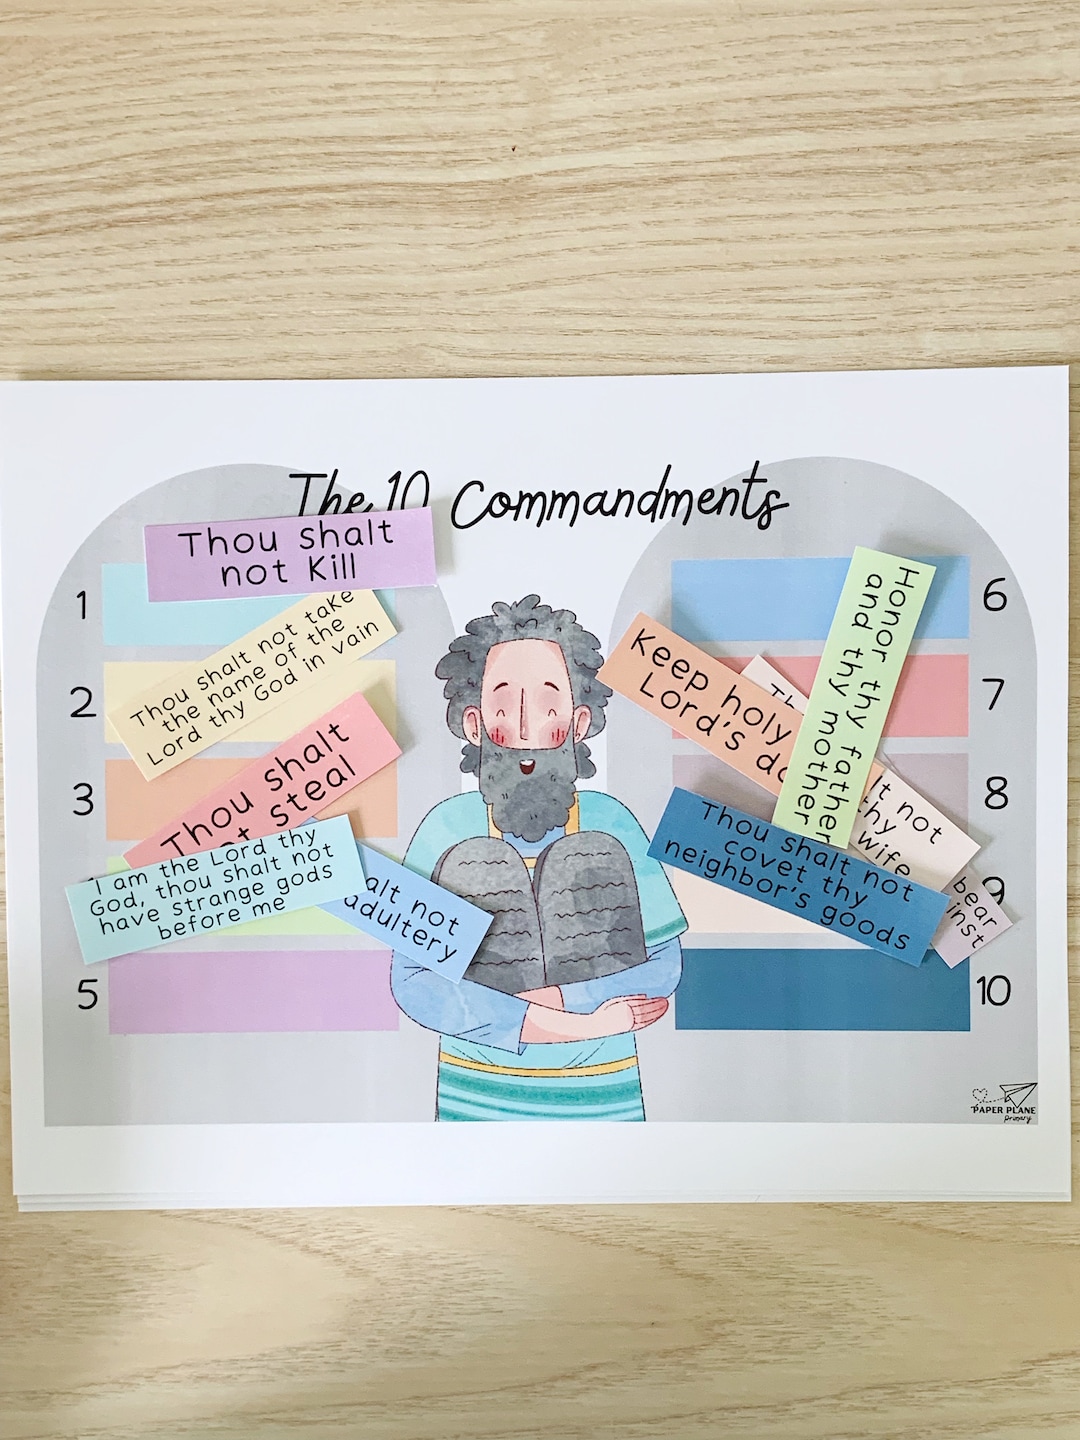 The 10 Commandments
Thou shalt
not Kill
1
Thou shalt not take
the name of the
Lord thy God in vain
2
Thou shalt
steal
3
I am the Lord thy
God, thou shalt not
have strange gods
before me
not
adultery
5
Honor thy father
and thy mother
6
Keep holy
Lord's
7
not
thy
wife
8
Thou shalt not
covet thy
neighbor's goods
9
bear
10
PAPER PLANE
primary